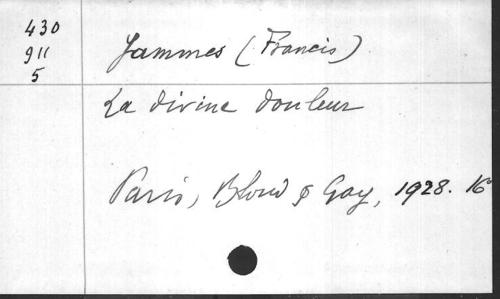 430
911
5
Jammes (Francis)
La divine douleur
Paris, Bloud & Gay, 1928. 16